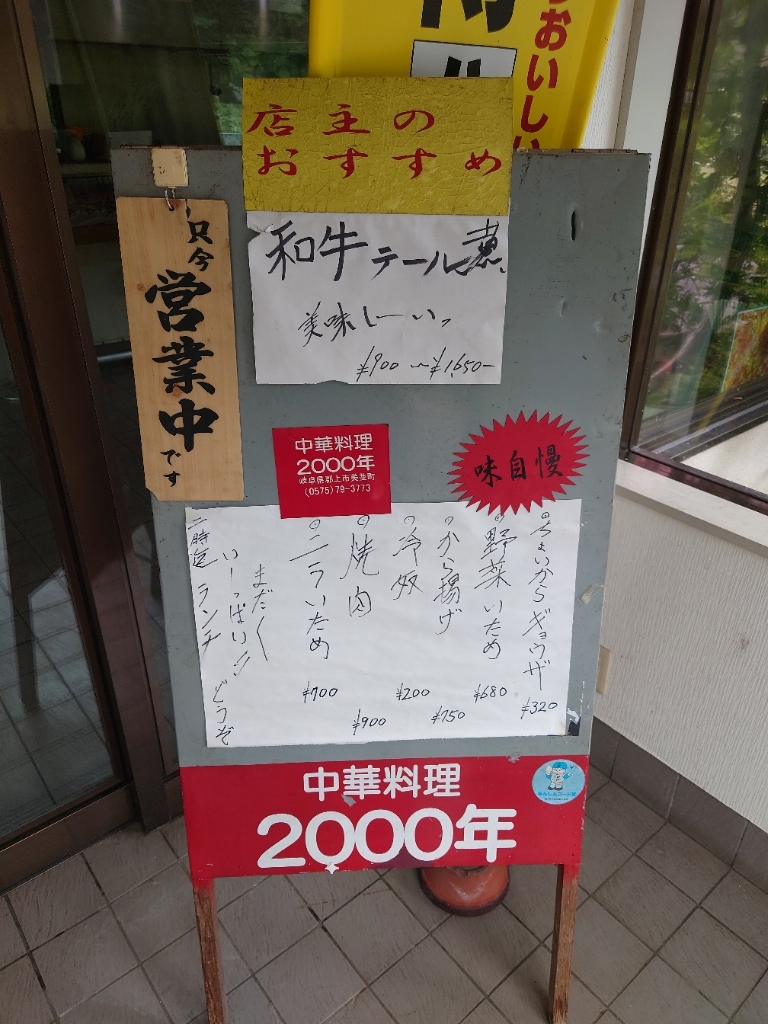 おいしい
店主の
おすすめ
和牛テール煮
美味しーいっ
¥900～¥1,650-
只今
営業中
です
中華料理
2000年
岐阜県郡上市美並町
(0575)79-3773
味自慢
ちょいからギョウザ ¥320
野菜いため ¥680
から揚げ ¥750
冷奴 ¥200
焼肉 ¥900
ニラいため ¥700
まだまだ
いーっぱい!! どうぞ
二時迄 ランチ
中華料理
2000年